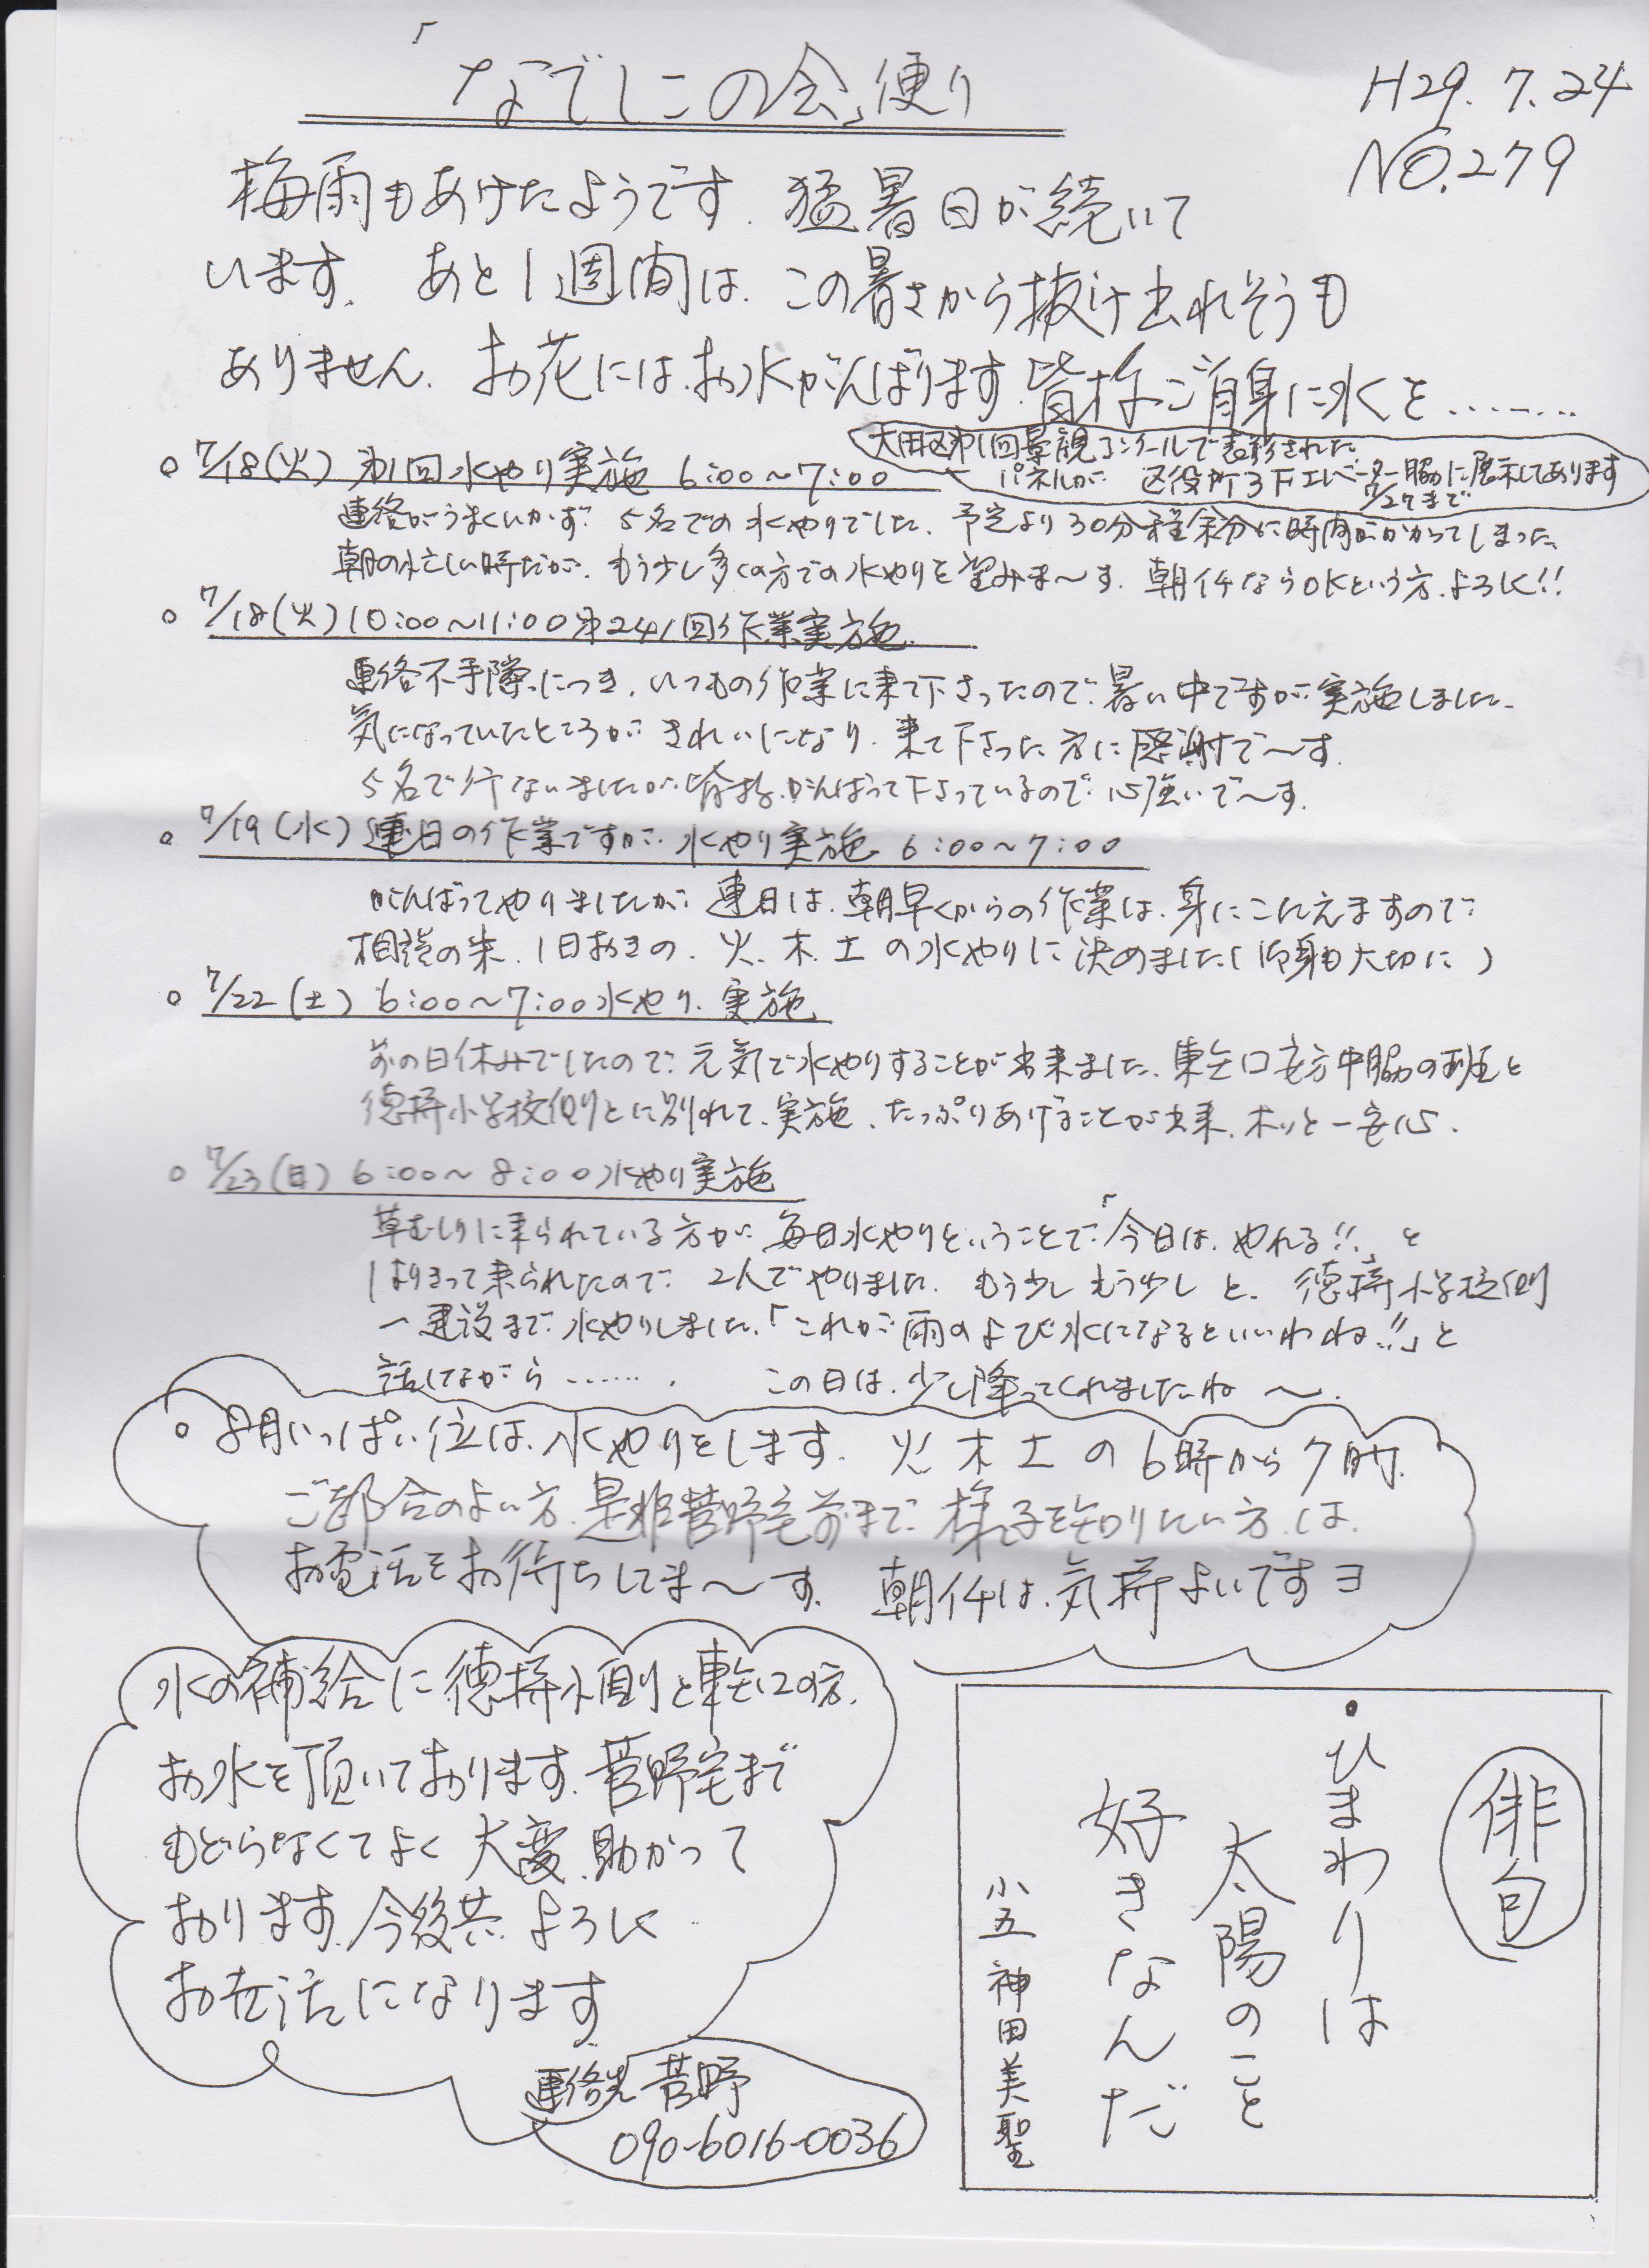 「なでしこの会」便り
H29.7.24
NO.279
梅雨もあけたようです. 猛暑日が続いて
います. あと1週間は. この暑さから抜け出れそうも
ありません. お花には.お水がんばります.皆様ご自身に水を........
大田区第1回景観コンクールで表彰された
パネルが 区役所3Fエレベーター脇に展示してあります
7/27まで
○ 7/18(火) 第1回水やり実施 6:00~7:00
連絡がうまくいかず 5名での水やりでした. 予定より30分程余分に時間がかかってしまった.
朝の忙しい時だが. もう少し多くの方での水やりを望みま~す. 朝イチならOKという方.よろしく!!
○ 7/18(火) 10:00~11:00 第241回作業実施
連絡不手際につき. いつもの作業に来て下さったので.暑い中ですが実施しました.
気になっていたところが きれいになり. 来て下さった方に感謝で~す.
5名で行ないましたが皆様.がんばって下さっているので 心強いで~す.
○ 7/19(水) 連日の作業ですが 水やり実施 6:00~7:00
がんばってやりましたが 連日は.朝早くからの作業は.身にこたえますので
相談の末. 1日おきの. 火.木.土の水やりに決めました( 御身も大切に )
○ 7/22(土) 6:00~7:00水やり.実施
前の日休みでしたので 元気で水やりすることが出来ました. 東矢口安方中脇の班と
徳持小学校側とに別れて.実施.たっぷりあげることが出来.ホッと一安心.
○ 7/23(日) 6:00~8:00水やり実施
草むしりに来られている方が 毎日水やりということで「今日は.やれる!!」と
はりきって来られたので 2人でやりました. もう少しもう少しと. 徳持小学校側
一建設まで 水やりしました.「これが雨のよび水になるといいわね!!」と
話しながら....... この日は.少し降ってくれましたね~.
○ 8月いっぱい位は.水やりをします. 火 木 土 の 6時から7時.
ご都合のよい方.是非菅野宅前まで 様子を知りたい方.は.
お電話をお待ちしてま~す. 朝イチは.気持よいですヨ
水の補給に徳持小側と東矢口の方.
お水を頂いております.菅野宅まで
もどらなくてよく大変.助かって
おります.今後共.よろしく
お世話になります
連絡先 菅野
090-6016-0036
俳句
・ひまわりは
太陽のこと
好きなんだ
小五 神田美聖